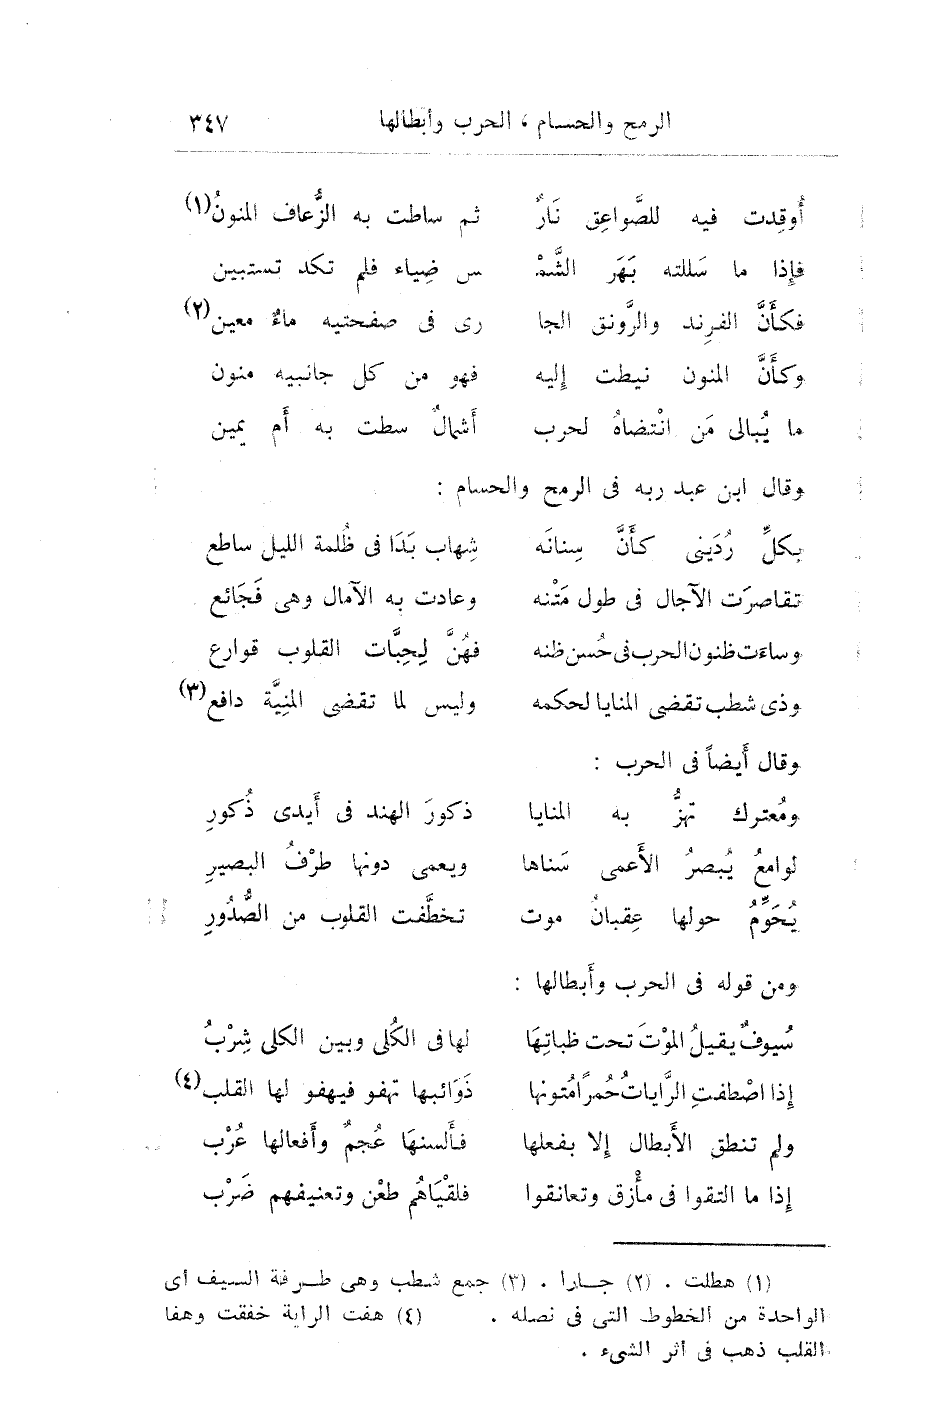 الرمح والحسام ، الحرب وأبطالها ٣٤٧
أُوقِدت فيه للصَّواعِق نَارٌ ثم ساطت به الزُّعاف المنونُ(١)
فإذا ما سَللته بَهَر الشَّمْ س ضِياء فلم تكد تستبين
فكأَنَّ الفرِند والرَّونق الجا رى فى صفحتيه ماءٌ معين(٢)
وكأَنَّ المنون نيطت إليه فهو من كل جانبيه منون
ما يُبالى مَن انْتضاهُ لحرب أَشمالٌ سطت به أَم يمين
وقال ابن عبد ربه فى الرمح والحسام :
بكلِّ رُدَينى كأَنَّ سِنانَه شِهاب بَدَا فى ظُلمة الليل ساطع
تقاصرَت الآجال فى طول مَتْنه وعادت به الآمال وهى فَجَائع
وساءَت ظنون الحرب فى حُسن ظنه فهُنَّ لِحِبَّات القلوب قوارع
وذى شطب تقضى المنايا لحكمه وليس لما تقضى المنِيَّة دافع(٣)
وقال أَيضاً فى الحرب :
ومُعترك تهزُّ به المنايا ذكورَ الهند فى أَيدى ذُكورِ
لوامعُ يُبصرُ الأَعمى سَناها ويعمى دونها طرْفُ البصيرِ
يُحَوِّمُ حولها عِقبانُ موت تخطَّفت القلوب من الصُّدُورِ
ومن قوله فى الحرب وأَبطالها :
سُيوفٌ يقيلُ الموْتَ تحت ظباتِهَا لها فى الكُلى وبين الكلى شِرْبُ
إذا اصْطفتِ الرَّاياتُ حُمرًا مُتونها ذَوَائبها تهفو فيهفو لها القلب(٤)
ولم تنطق الأَبطال إلا بفعلها فألسنهَا عُجمٌ وأَفعالها عُرْب
إذا ما التقوا فى مأْزق وتعانقوا فلقيْاهُم طعْن وتعنيفهم ضَرْب
(١) هطلت . (٢) جارا . (٣) جمع شطب وهى طرفة السيف أى
الواحدة من الخطوط التى فى نصله . (٤) هفت الراية خفقت وهفا
القلب ذهب فى أثر الشىء .